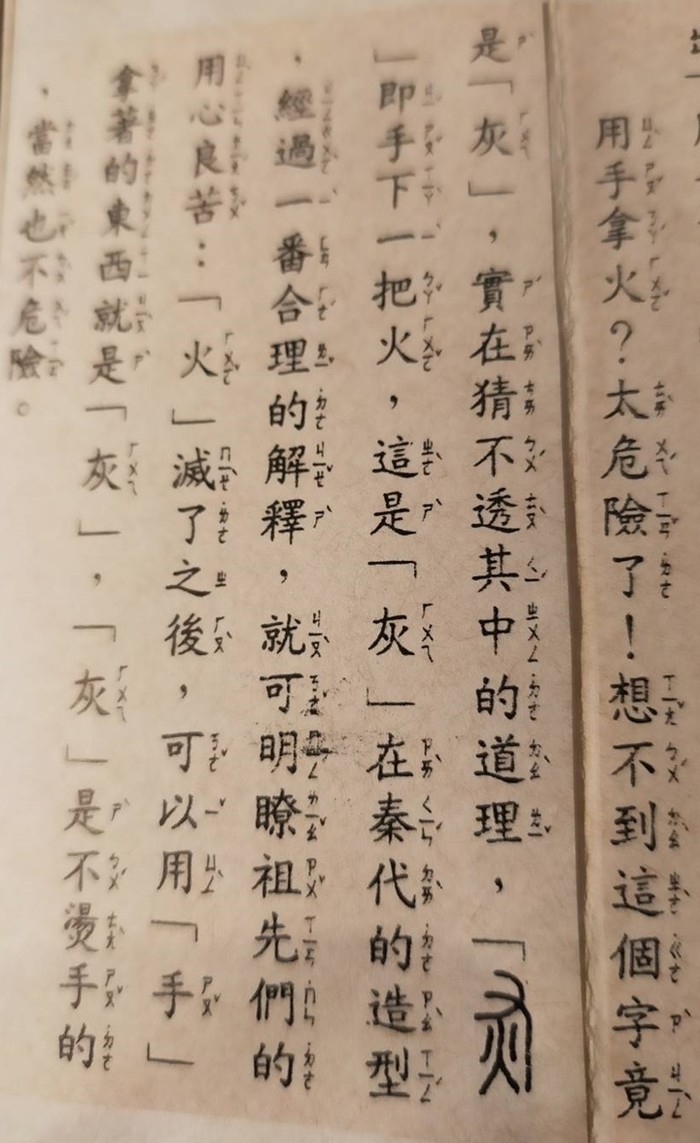 用手拿火？太危險了！想不到這個字竟
是「灰」，實在猜不透其中的道理，「
」即手下一把火，這是「灰」在秦代的造型
，經過一番合理的解釋，就可明瞭祖先們的
用心良苦：「火」滅了之後，可以用「手」
拿著的東西就是「灰」，「灰」是不燙手的
，當然也不危險。